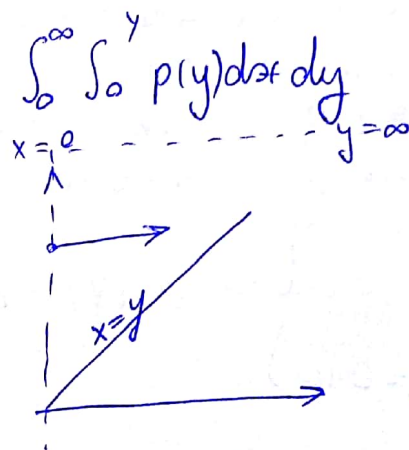 ∫₀^∞ ∫₀^y p(y)dx dy
x = 0 y = ∞
x=y